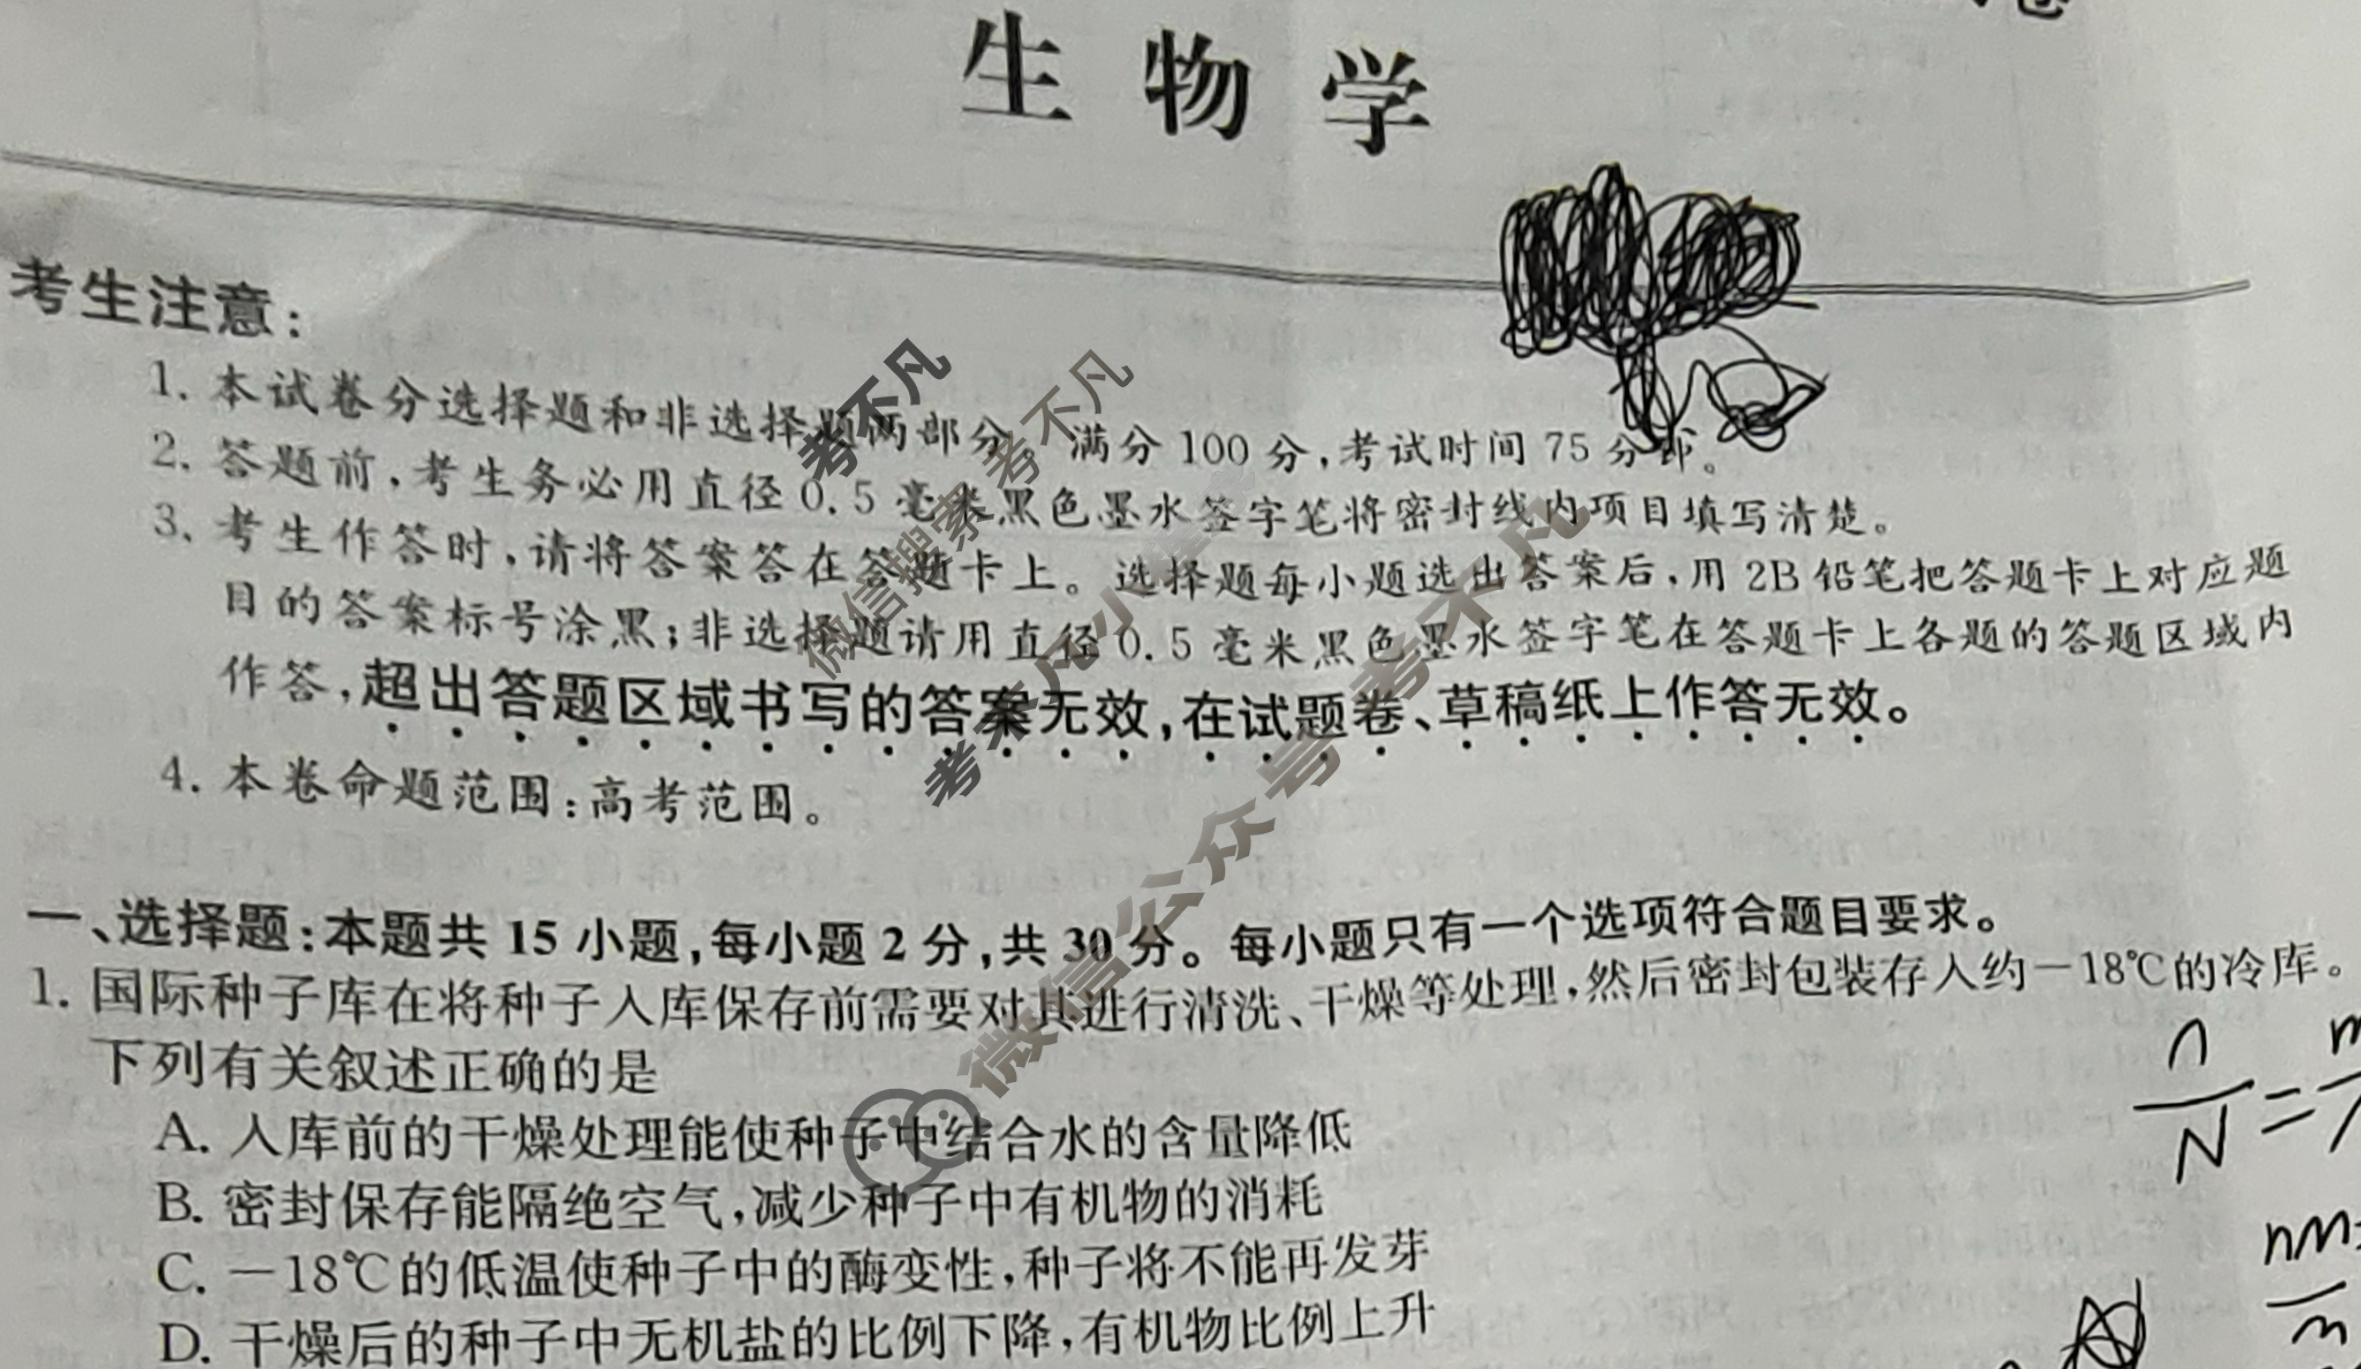 生物学
考生注意:
1. 本试卷分选择题和非选择题两部分。满分100分,考试时间75分钟。
2. 答题前,考生务必用直径0.5毫米黑色墨水签字笔将密封线内项目填写清楚。
3. 考生作答时,请将答案答在答题卡上。选择题每小题选出答案后,用2B铅笔把答题卡上对应题
目的答案标号涂黑;非选择题请用直径0.5毫米黑色墨水签字笔在答题卡上各题的答题区域内
作答,超出答题区域书写的答案无效,在试题卷、草稿纸上作答无效。
4. 本卷命题范围:高考范围。
一、选择题:本题共15小题,每小题2分,共30分。每小题只有一个选项符合题目要求。
1. 国际种子库在将种子入库保存前需要对其进行清洗、干燥等处理,然后密封包装存入约-18℃的冷库。
下列有关叙述正确的是
A. 入库前的干燥处理能使种子中结合水的含量降低
B. 密封保存能隔绝空气,减少种子中有机物的消耗
C. -18℃的低温使种子中的酶变性,种子将不能再发芽
D. 干燥后的种子中无机盐的比例下降,有机物比例上升
考不凡
微信搜索 考不凡
考不凡小
微信公众号 考不凡
n
N
=
nm